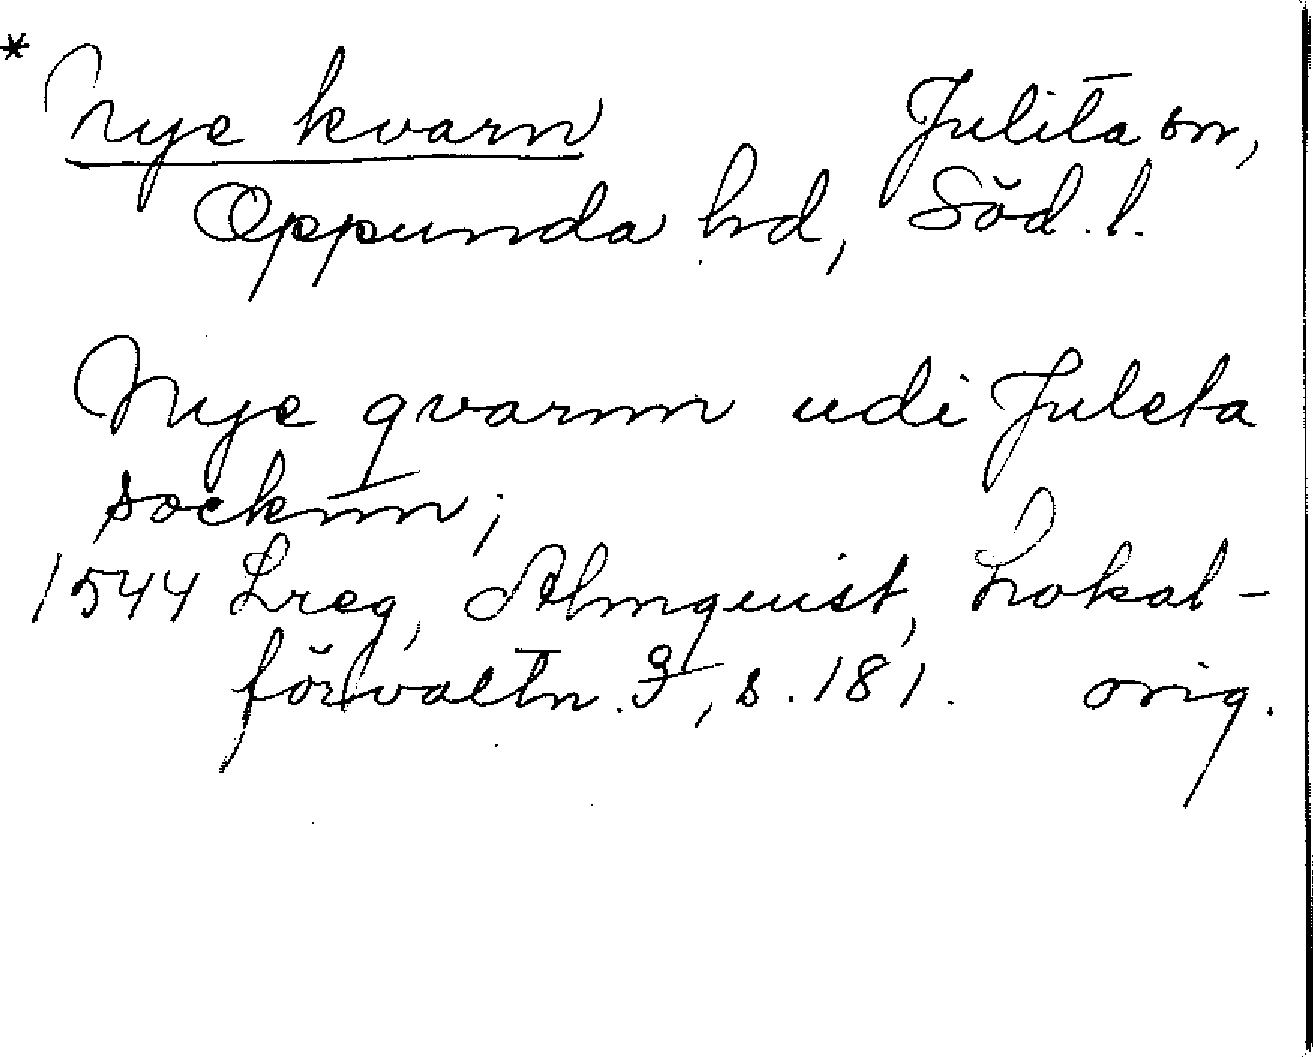 * Nye kvarn Julita sn,
Oppunda hd, Söd. l.
Nye qvarnn udi Juleta
socknn;
1544 Lreg, Almquist, Lokal-
förvaltn. 3, s. 181. orig.